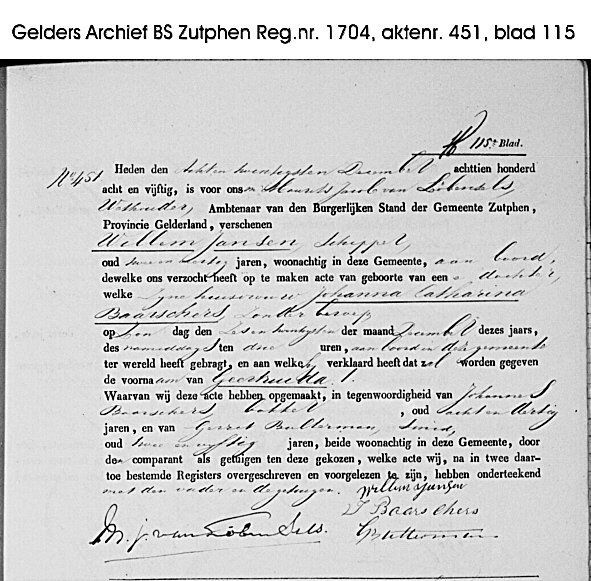 Gelders Archief BS Zutphen Reg.nr. 1704, aktenr. 451, blad 115
115e Blad.
No. 451
Heden den achten twentigsten December achttien honderd
acht en vijftig, is voor ons Maurits Jacob van Löbensels,
Wethouder, Ambtenaar van den Burgerlijken Stand der Gemeente Zutphen,
Provincie Gelderland, verschenen
Willem Jansen, Schipper,
oud twee en dertig jaren, woonachtig in deze Gemeente, aan boord,
dewelke ons verzocht heeft op te maken acte van geboorte van eene dochter,
welke zijne huisvrouw Johanna Catharina
Baarschers, zonder beroep
op Zon dag den zesen twentigsten der maand December dezes jaars,
des namiddags ten drie uren, aan boord in deze gemeente
ter wereld heeft gebragt, en aan welke hij verklaard heeft dat zal worden gegeven
de voornaam van Geertruida.
Waarvan wij deze acte hebben opgemaakt, in tegenwoordigheid van Johannes
Baarschers, bakker, oud acht en dertig
jaren, en van Gerrit Bulterman, smid,
oud twee en vijftig jaren, beide woonachtig in deze Gemeente, door
den comparant als getuigen ten deze gekozen, welke acte wij, na in twee daar-
toe bestemde Registers overgeschreven en voorgelezen te zijn, hebben onderteekend
met den vader en de getuigen.
Willem Jansen
J Baarschers
M. J. van Löben Sels.
G Bulterman